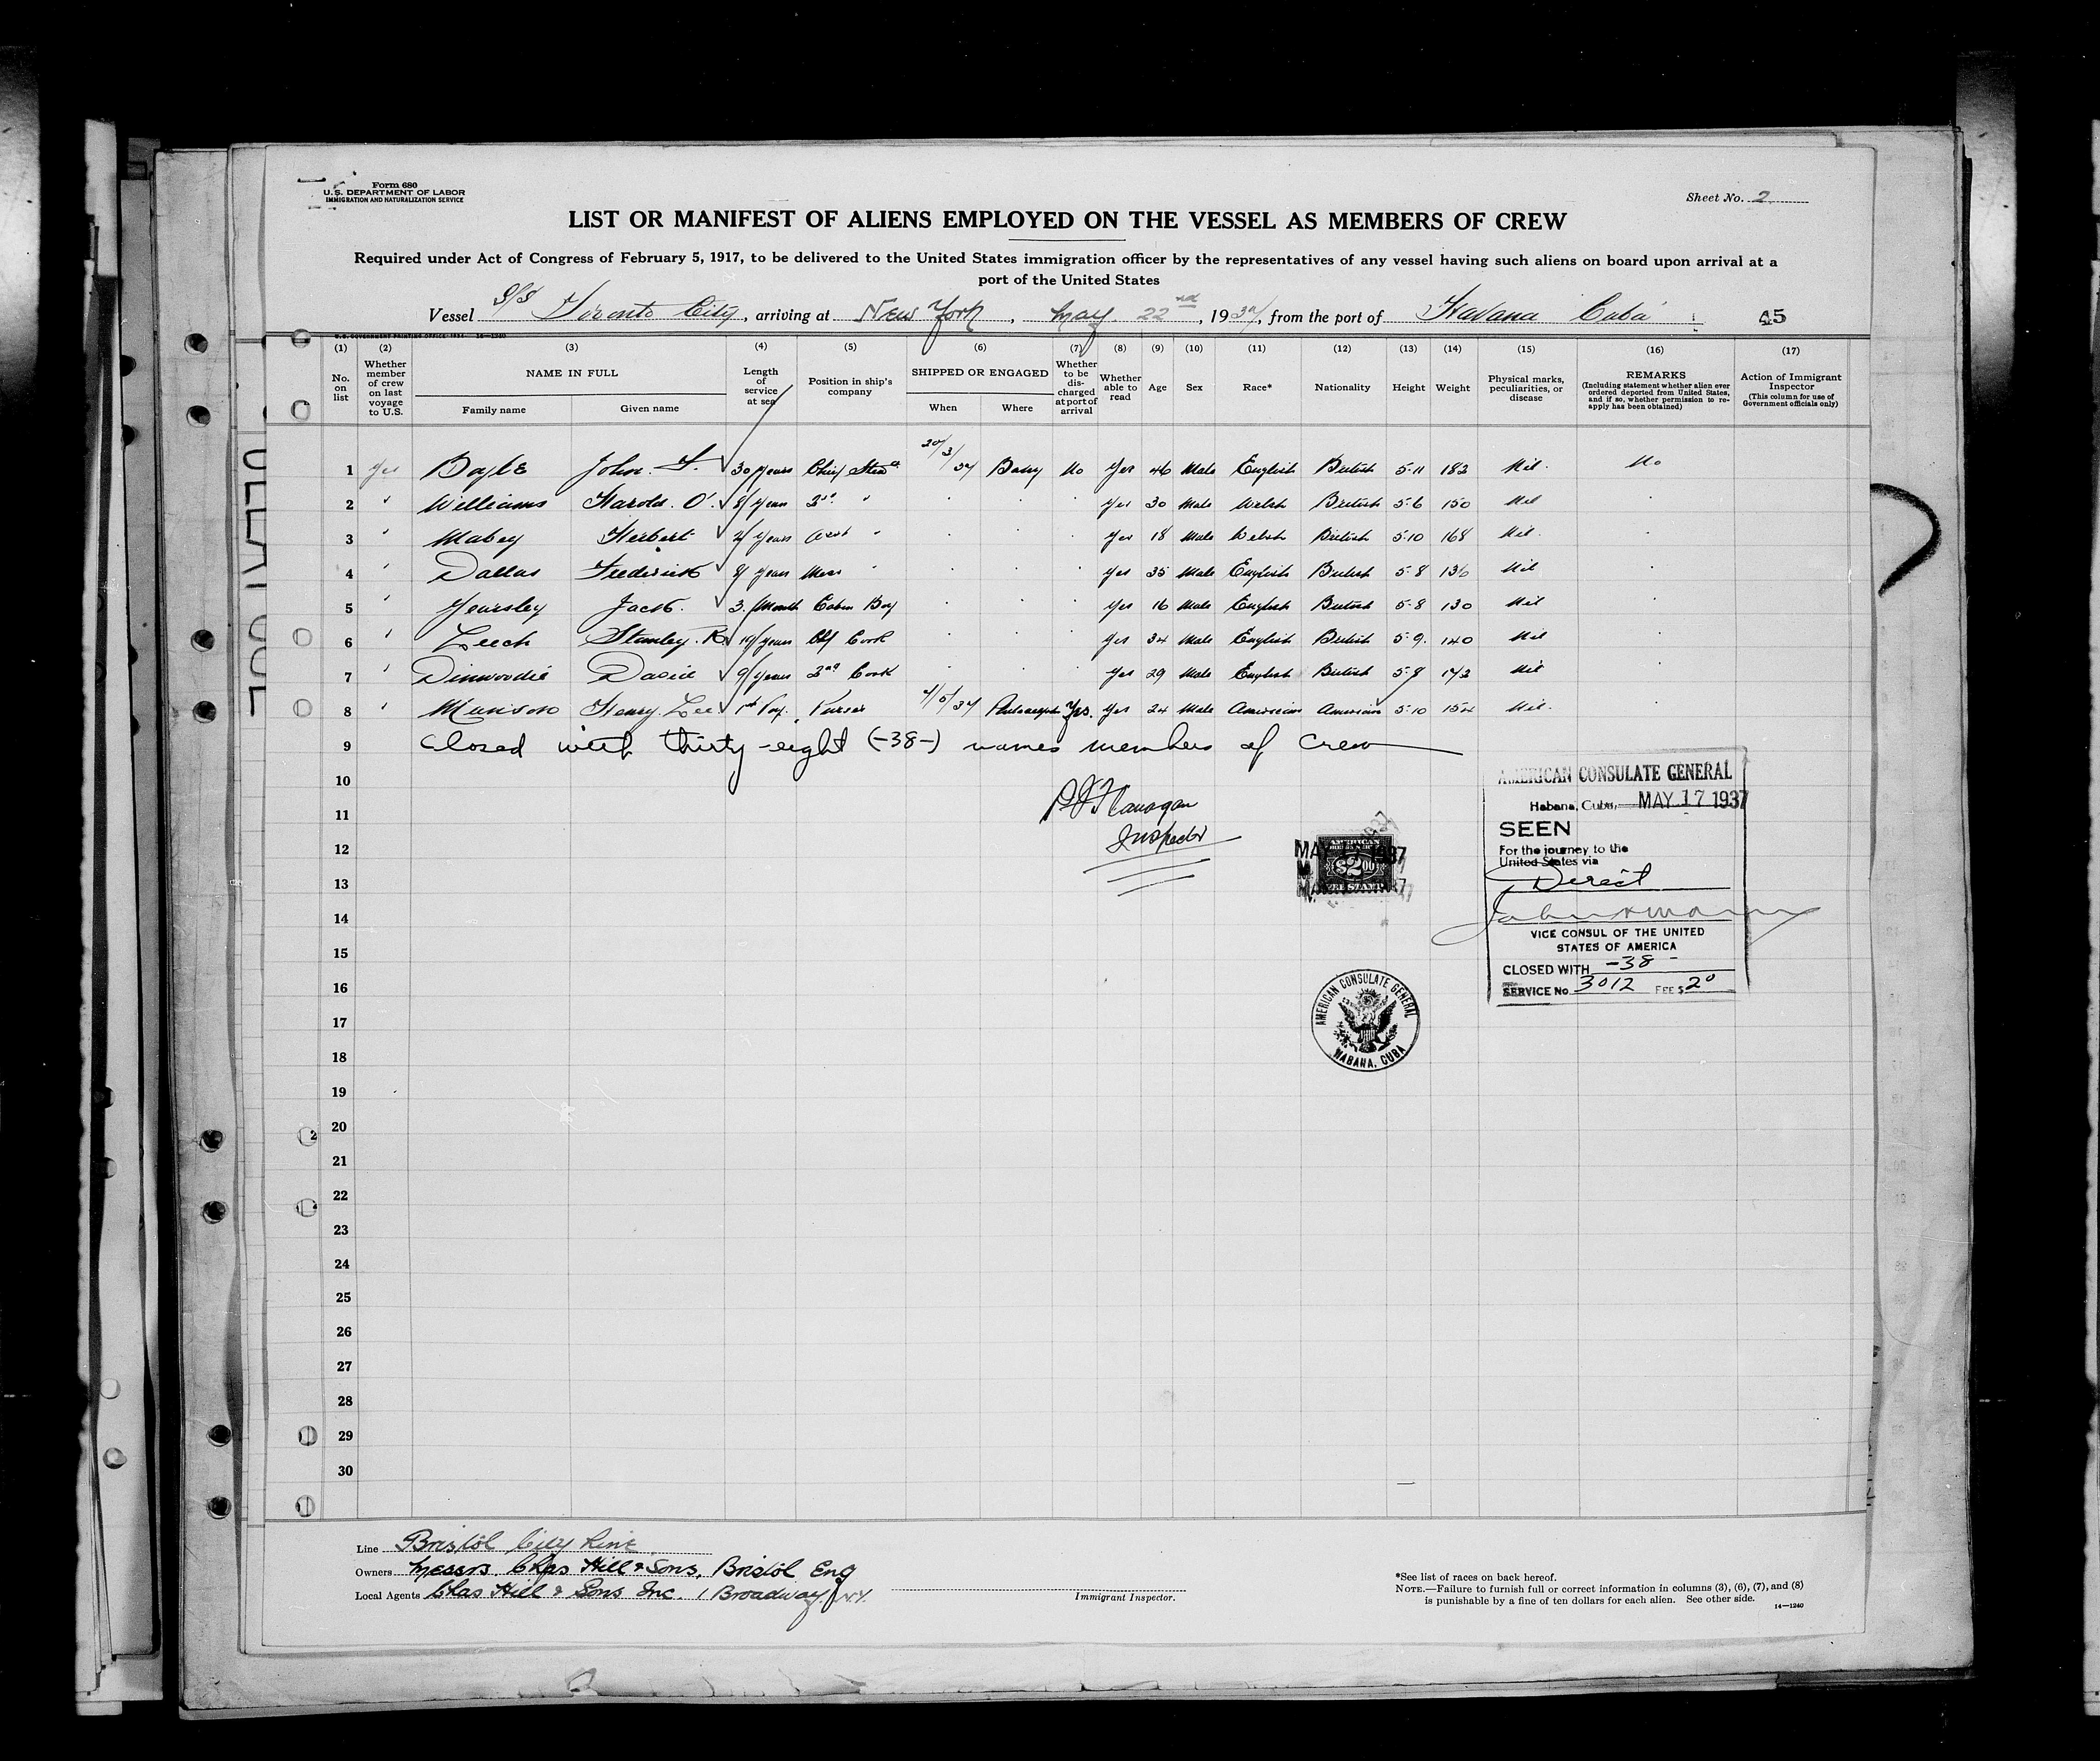 Form 680
U. S. DEPARTMENT OF LABOR
IMMIGRATION AND NATURALIZATION SERVICE
Sheet No. 2
LIST OR MANIFEST OF ALIENS EMPLOYED ON THE VESSEL AS MEMBERS OF CREW
Required under Act of Congress of February 5, 1917, to be delivered to the United States immigration officer by the representatives of any vessel having such aliens on board upon arrival at a
port of the United States
Vessel S/S Toronto City, arriving at New York, May 22nd, 1937, from the port of Havana Cuba 45
(1) (2) (3) (4) (5) (6) (7) (8) (9) (10) (11) (12) (13) (14) (15) (16) (17)
No. on list
Whether member of crew on last voyage to U.S.
NAME IN FULL
Family name Given name
Length of service at sea
Position in ship's company
SHIPPED OR ENGAGED
When Where
Whether to be discharged at port of arrival
Whether able to read
Age
Sex
Race*
Nationality
Height
Weight
Physical marks, peculiarities, or disease
REMARKS
(Including statement whether alien ever ordered deported from United States, and if so, whether permission to reapply has been obtained)
Action of Immigrant Inspector
(This column for use of Government officials only)
1 Yes Boyle John. 30 years Chief Stewd 20/3/37 Barry No Yes 46 Male English British 5-11 182 Nil. No
2 " Williams Harold. O. 8 years 2nd " Yes 30 Male Welsh British 5-6 150 Nil
3 " Mabey Herbert 2 years Asst " Yes 18 Male Welsh British 5-10 168 Nil.
4 " Dallas Frederick 8 years Mess " Yes 35 Male English British 5-8 136 Nil
5 " Yearsley Jack. 3. Month Cabin Boy Yes 16 Male English British 5-8 130 Nil
6 " Leech Stanley. R. 19 years Chf Cook Yes 34 Male English British 5-9. 140 Nil
7 " Dinwoodie David 9 years 2nd Cook Yes 29 Male English British 5-8 142 Nil
8 " Munson Henry. Lee 1st Voy. Purser 4/5/37 Philadelphia Yes. Yes 24 Male American American 5-10 154 Nil.
9 Closed with thirty-eight (-38-) names members of crew
10
11
12
13
14
15
16
17
18
19
20
21
22
23
24
25
26
27
28
29
30
Flanagan
Inspector
AMERICAN CONSULATE GENERAL
Habana, Cuba, MAY 17 1937
SEEN
For the journey to the
United States via
Direct
VICE CONSUL OF THE UNITED
STATES OF AMERICA
CLOSED WITH -38-
SERVICE No. 3012 FEE $ 2.0
MAY 17 1937
AMERICAN
$2.00
FEE STAMP
AMERICAN CONSULATE GENERAL
HABANA, CUBA
Line Bristol City Line
Owners Messrs. Chas Hill & Sons, Bristol Eng
Local Agents Chas Hill & Sons Inc. 1 Broadway N.Y.
Immigrant Inspector.
*See list of races on back hereof.
NOTE.—Failure to furnish full or correct information in columns (3), (6), (7), and (8)
is punishable by a fine of ten dollars for each alien. See other side.
14—1240